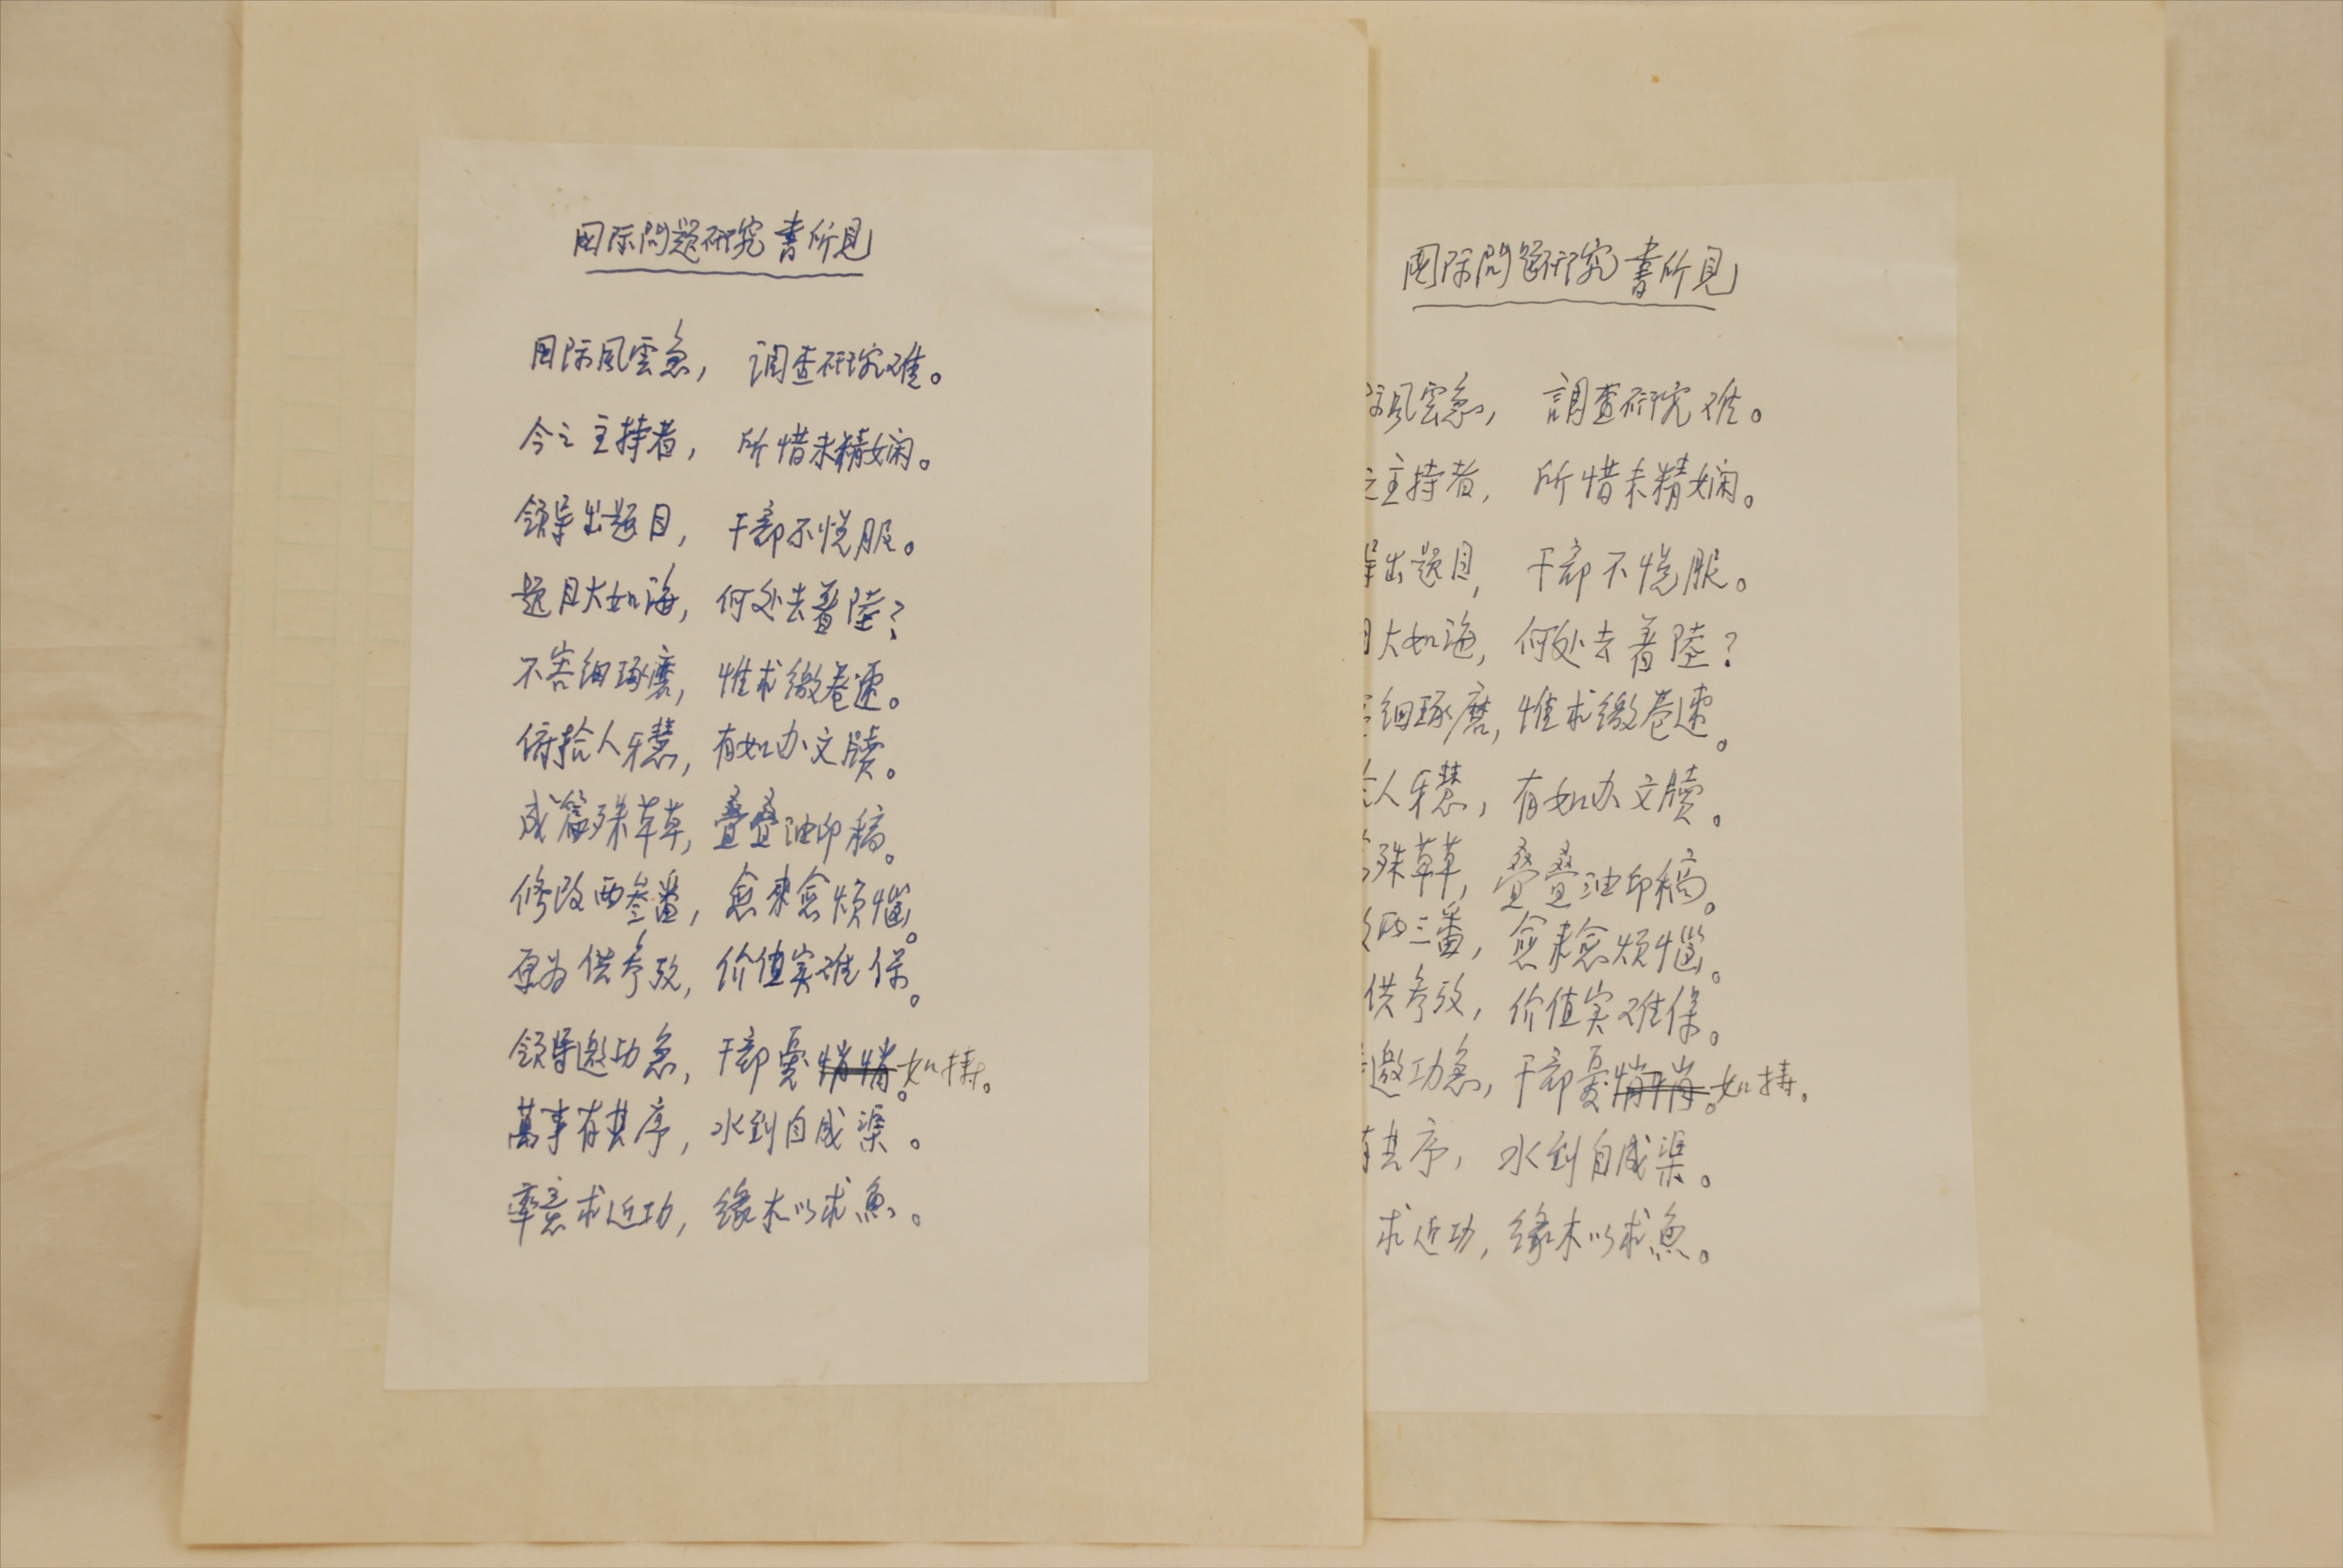 国际問题研究書所見
国际風雲急, 调查研究难。
今之主持者, 所惜未精娴。
领导出题目, 干部不悦服。
题目大如海, 何处去着陸?
不容细琢磨, 惟求缴卷速。
俯拾人牙慧, 有如办文牍。
成篇殊草草, 叠叠油印稿。
修改两叁番, 愈来愈烦恼。
原为供参攷, 价值实难保。
领导邀功急, 干部憂悄悄。如擣。
萬事有其序, 水到自成渠。
率意求近功, 缘木以求魚。
国际問题研究書所見
風雲急, 調查研究难。
之主持者, 所惜未精娴。
出题目, 干部不悦服。
大如海, 何处去着陸?
细琢磨, 惟求缴卷速。
人牙慧, 有如办文牍。
殊草草, 叠叠油印稿。
两三番, 愈来愈烦恼。
供参攷, 价值实难保。
邀功急, 干部憂悄悄。如擣。
有其序, 水到自成渠。
求近功, 缘木以求魚。